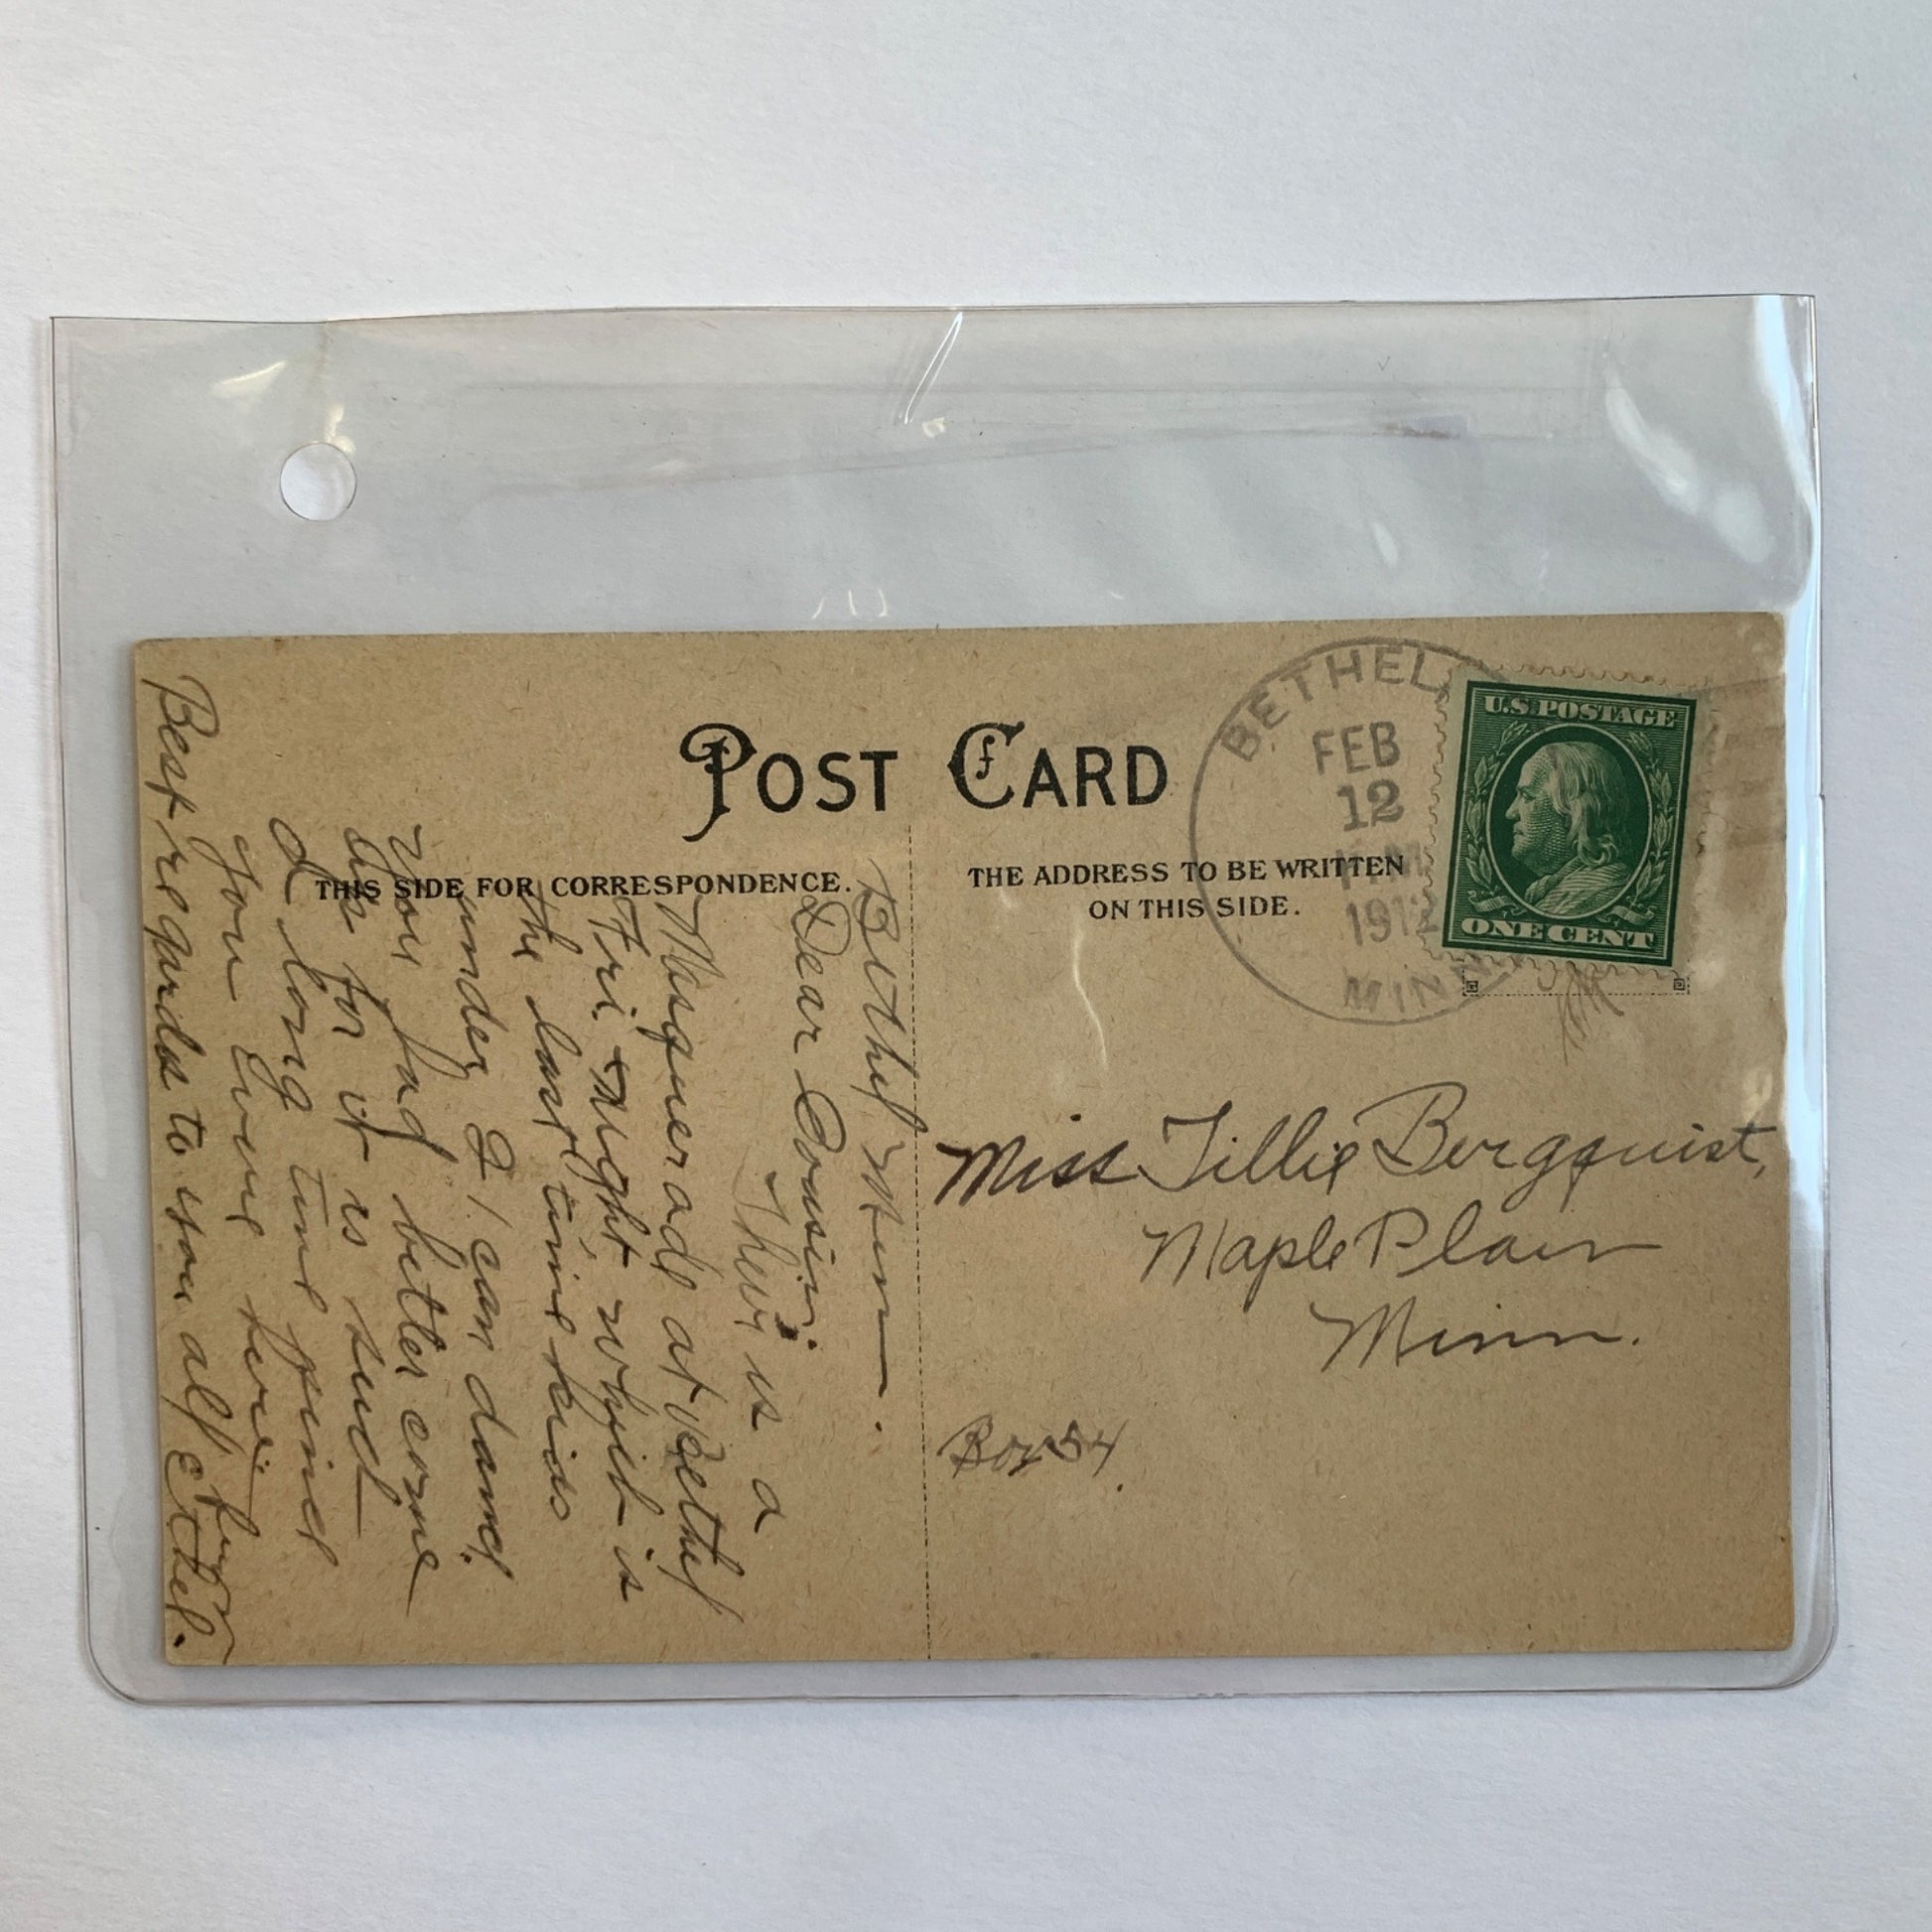 POST CARD
THIS SIDE FOR CORRESPONDENCE.
THE ADDRESS TO BE WRITTEN
ON THIS SIDE.
BETHEL
FEB
12
1912
MINN
U.S. POSTAGE
ONE CENT
Miss Tillie Bergquist,
Maple Plain
Minn.
Box 54
Bethel Minn.
Dear Cousin:
Their is a
Masquerade at Bethel
Fri. Night which is
the last time kids
under 21 can dance
You had better come
up for it is such
a long time since
you were here
Best regards to you all from
Ethel.